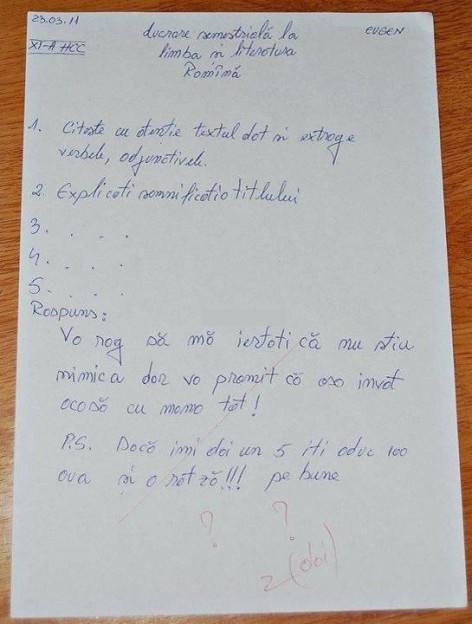 23.03.11
EUGEN
XI-A HCC
Lucrare semestrială la
limba și literatura
Romînă
1. Citeste cu atentie textul dat si extrage
verbele, adjunctivele.
2. Explicati semnificatia titlului
3. . . .
4. . . .
5. . . .
Raspuns:
Va rog să mă iertati că nu stiu
nimica dar va promit că oso invat
acasă cu mama tot!
P.S. Dacă imi dai un 5 iti aduc 100
oua și o rătză!!! pe bune
? ?
2 (doi)